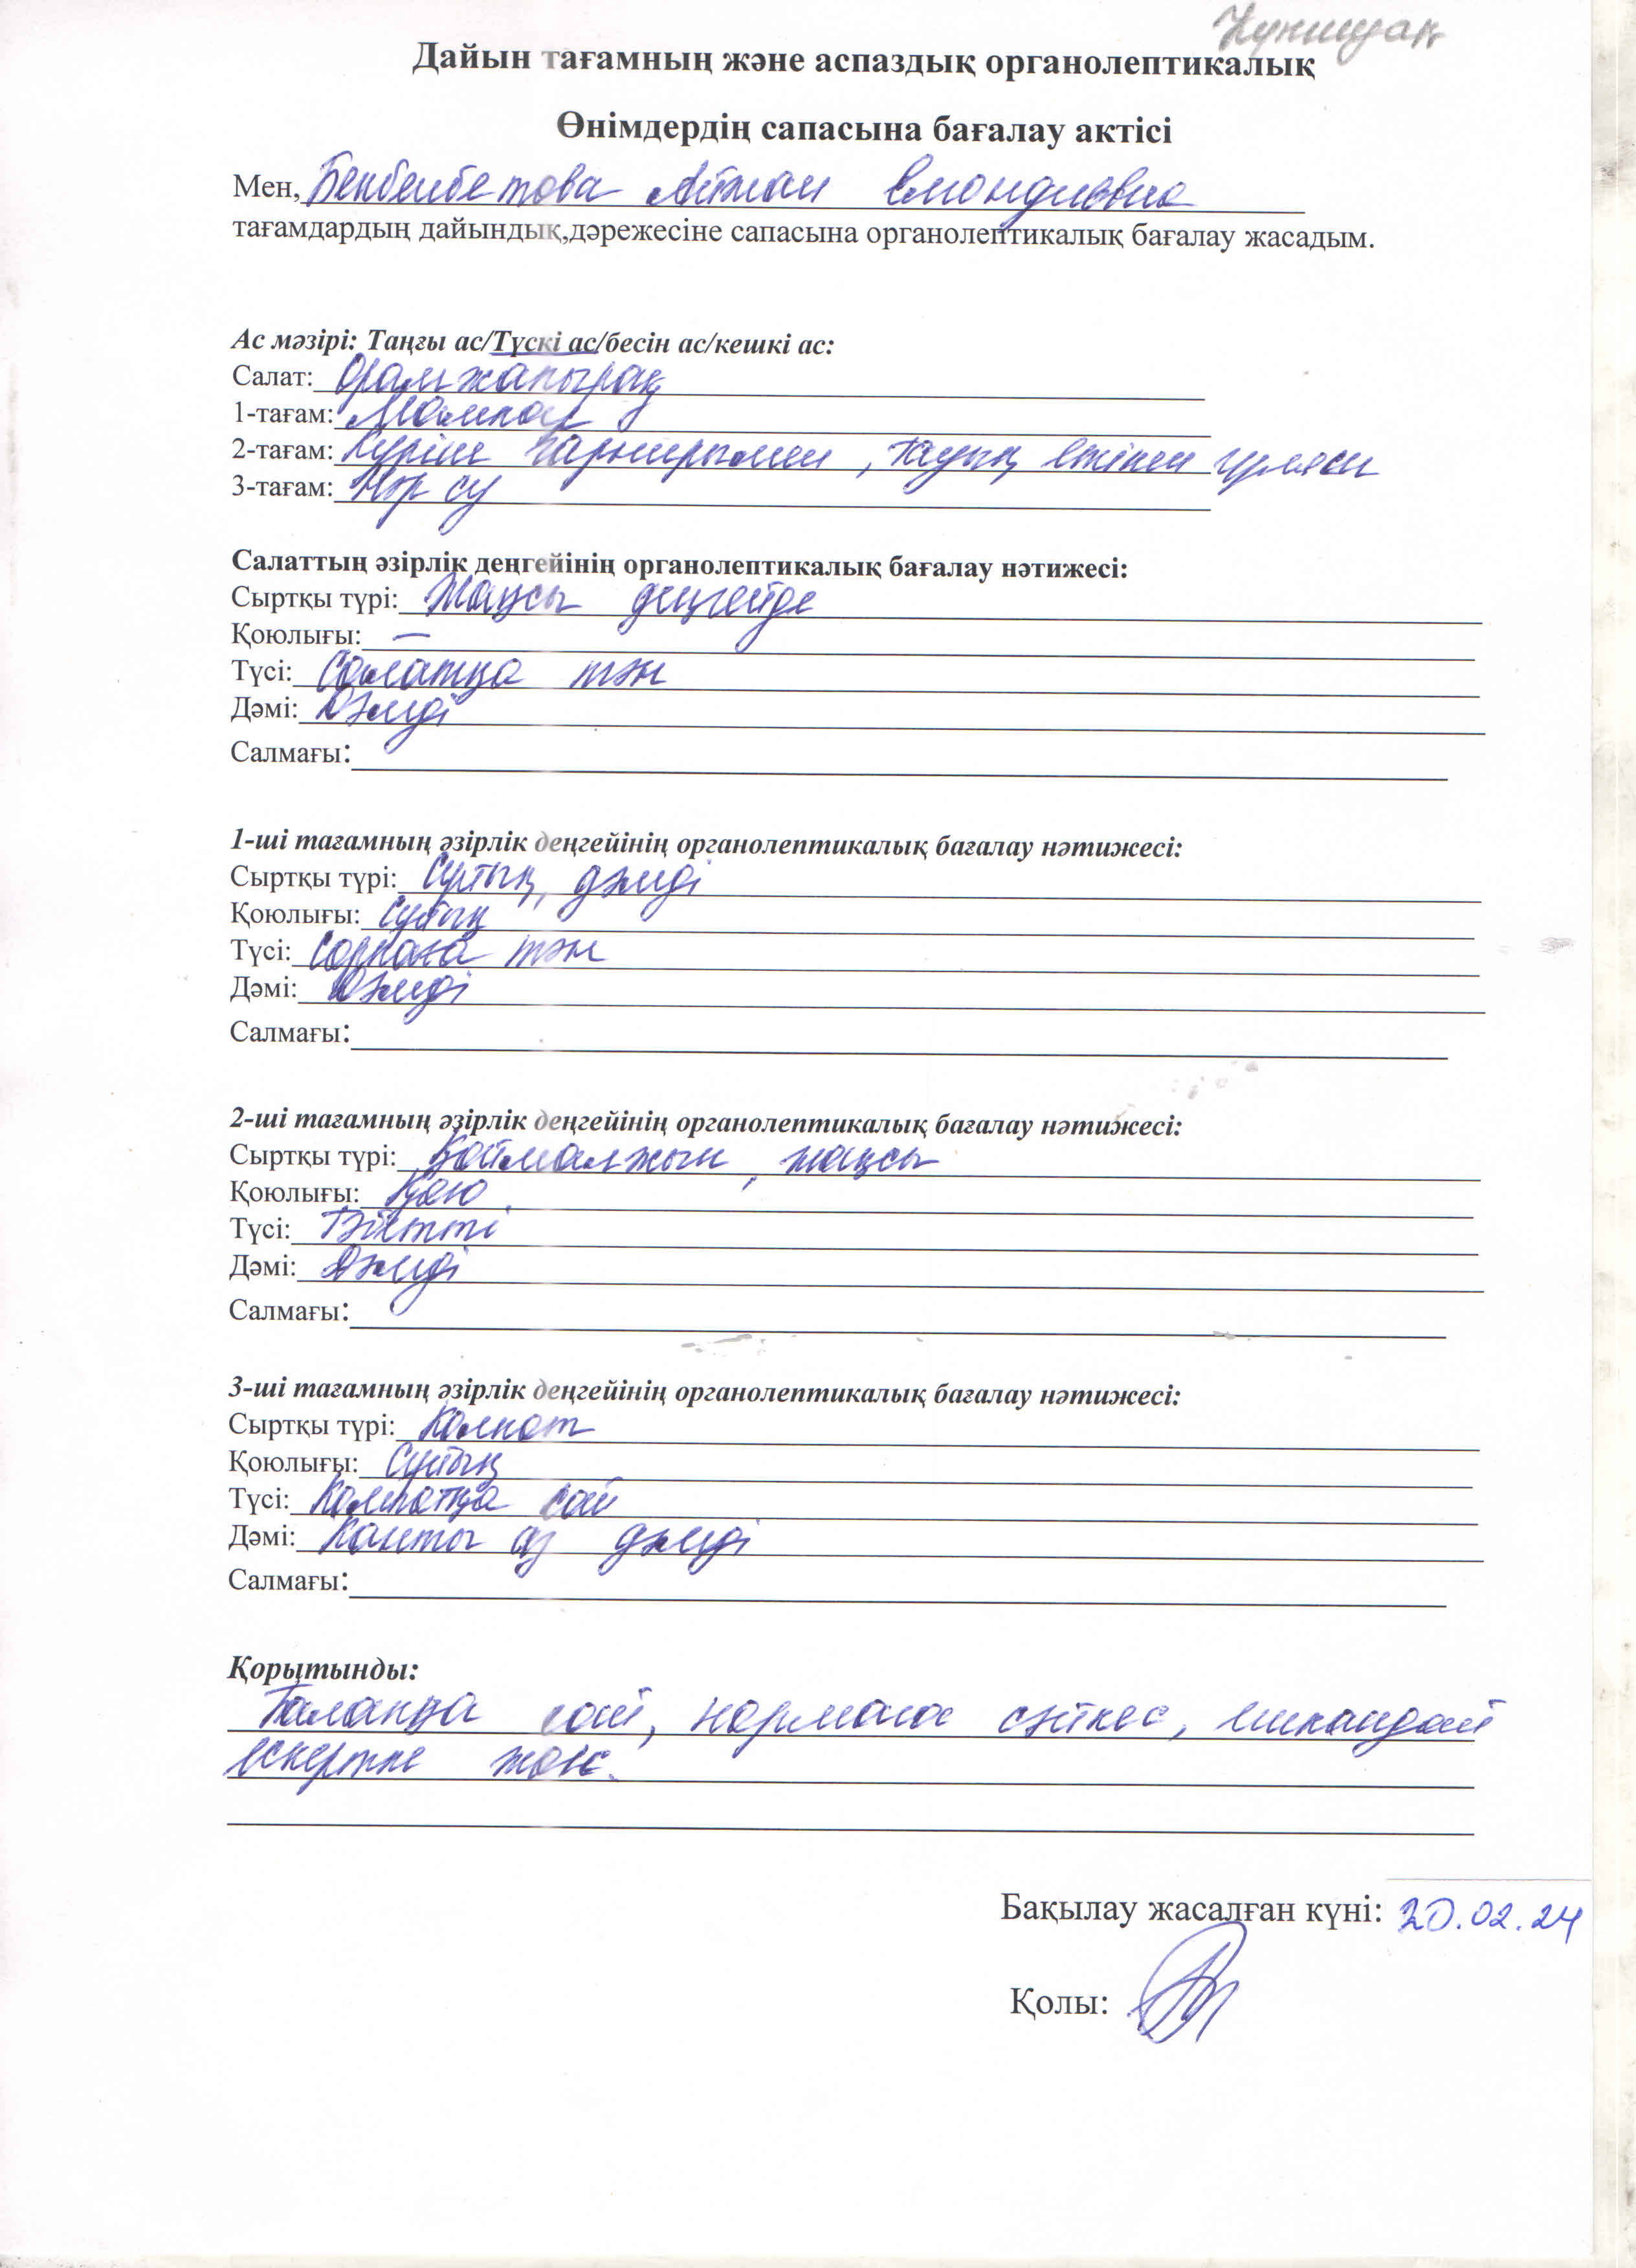 Күншуақ
Дайын тағамның және аспаздық органолептикалық
Өнімдердің сапасына бағалау актісі
Мен, Бекбембетова Айжан
тағамдардың дайындық,дәрежесіне сапасына органолептикалық бағалау жасадым.
Ас мәзірі: Таңғы ас/Түскі ас/бесін ас/кешкі ас:
Салат: Орамжапырақ
1-тағам: Мампар
2-тағам: Күріш гарнирымен, тауық етінен гуляш
3-тағам: Нәр су
Салаттың әзірлік деңгейінің органолептикалық бағалау нәтижесі:
Сыртқы түрі: Жақсы деңгейде
Қоюлығы: —
Түсі: Салатқа тән
Дәмі: Дәмді
Салмағы:
1-ші тағамның әзірлік деңгейінің органолептикалық бағалау нәтижесі:
Сыртқы түрі: Сұйық, дәмді
Қоюлығы: Сұйық
Түсі: Сорпаға тән
Дәмі: Дәмді
Салмағы:
2-ші тағамның әзірлік деңгейінің органолептикалық бағалау нәтижесі:
Сыртқы түрі: Қоймалжын, жақсы
Қоюлығы: Қою
Түсі: Тәбетті
Дәмі: Дәмді
Салмағы:
3-ші тағамның әзірлік деңгейінің органолептикалық бағалау нәтижесі:
Сыртқы түрі: Компот
Қоюлығы: Сұйық
Түсі: Компотқа сай
Дәмі: Қанты аз дәмді
Салмағы:
Қорытынды:
Талапқа сай, нормаға сәйкес, ешқандай
ескертпе жоқ.
Бақылау жасалған күні: 20.02.24
Қолы: